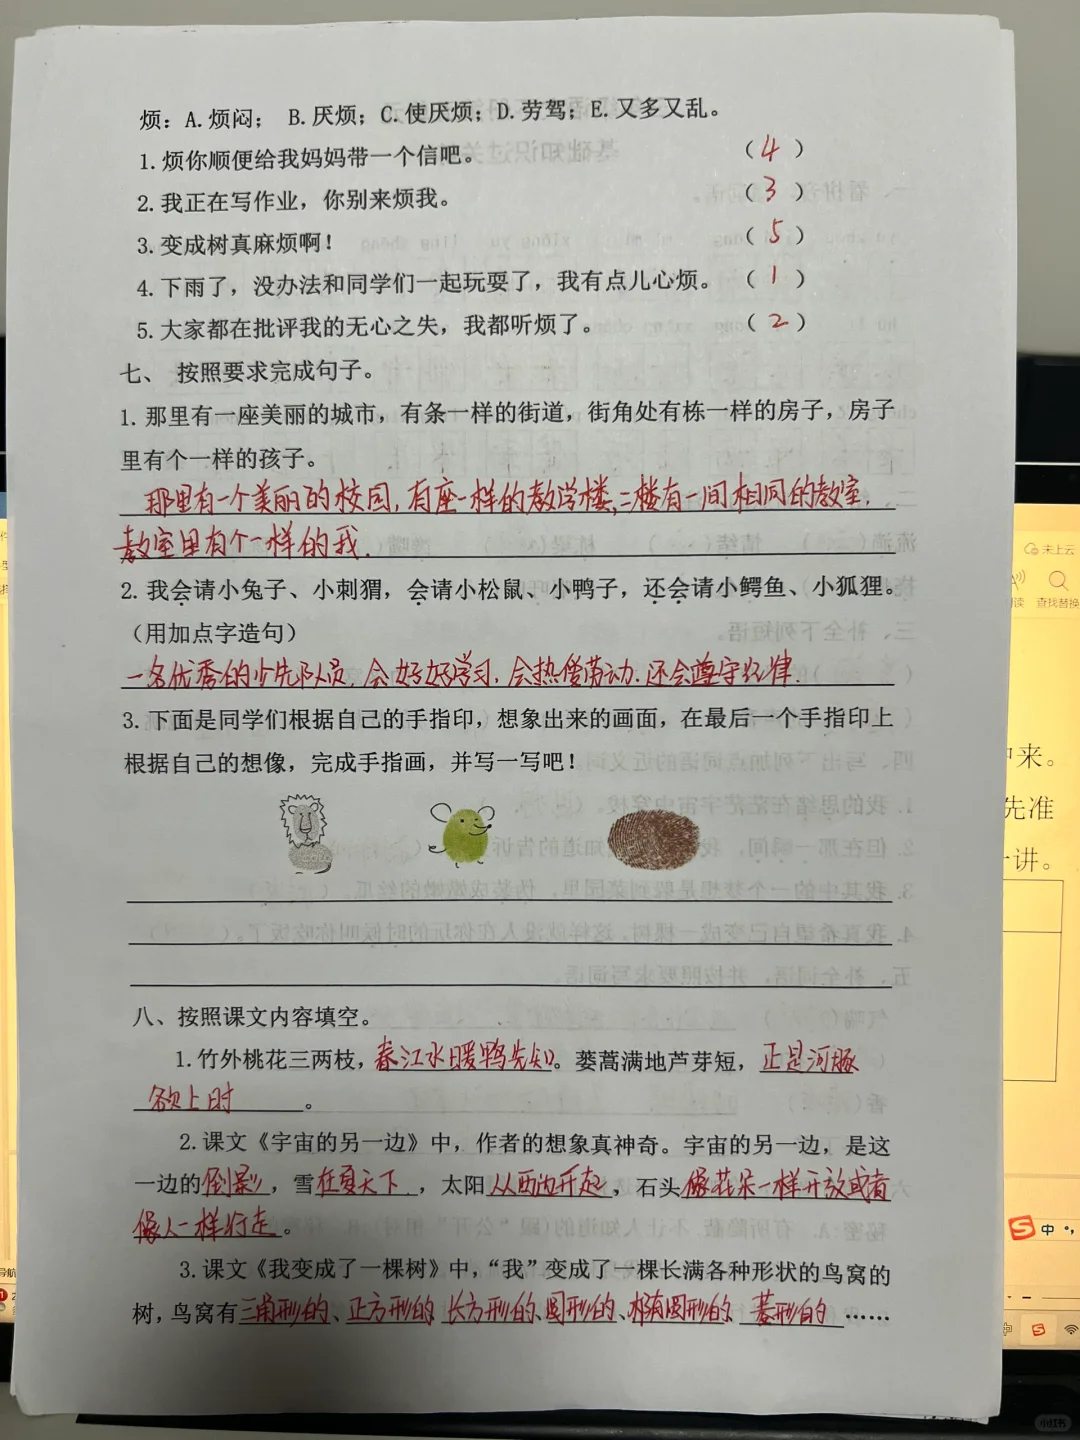 烦：A.烦闷； B.厌烦；C.使厌烦；D.劳驾；E.又多又乱。
1.烦你顺便给我妈妈带一个信吧。 （ 4 ）
2.我正在写作业，你别来烦我。 （ 3 ）
3.变成树真麻烦啊！ （ 5 ）
4.下雨了，没办法和同学们一起玩耍了，我有点儿心烦。 （ 1 ）
5.大家都在批评我的无心之失，我都听烦了。 （ 2 ）
七、 按照要求完成句子。
1.那里有一座美丽的城市，有条一样的街道，街角处有栋一样的房子，房子
里有个一样的孩子。
那里有一个美丽的校园，有座一样的教学楼，二楼有一间相同的教室，
教室里有个一样的我．
2.我会请小兔子、小刺猬，会请小松鼠、小鸭子，还会请小鳄鱼、小狐狸。
（用加点字造句）
一名优秀的少先队员，会好好学习，会热爱劳动．还会遵守纪律．
3.下面是同学们根据自己的手指印，想象出来的画面，在最后一个手指印上
根据自己的想像，完成手指画，并写一写吧！
八、按照课文内容填空。
1.竹外桃花三两枝，春江水暖鸭先知。蒌蒿满地芦芽短，正是河豚
欲上时。
2.课文《宇宙的另一边》中，作者的想象真神奇。宇宙的另一边，是这
一边的倒影，雪在夏天下，太阳从西边升起，石头像花朵一样开放或者
像人一样行走。
3.课文《我变成了一棵树》中，“我”变成了一棵长满各种形状的鸟窝的
树，鸟窝有三角形的、正方形的、长方形的、圆形的、椭圆形的、菱形的……
未上云
查找替换
来。
先准
讲。
中
小红书